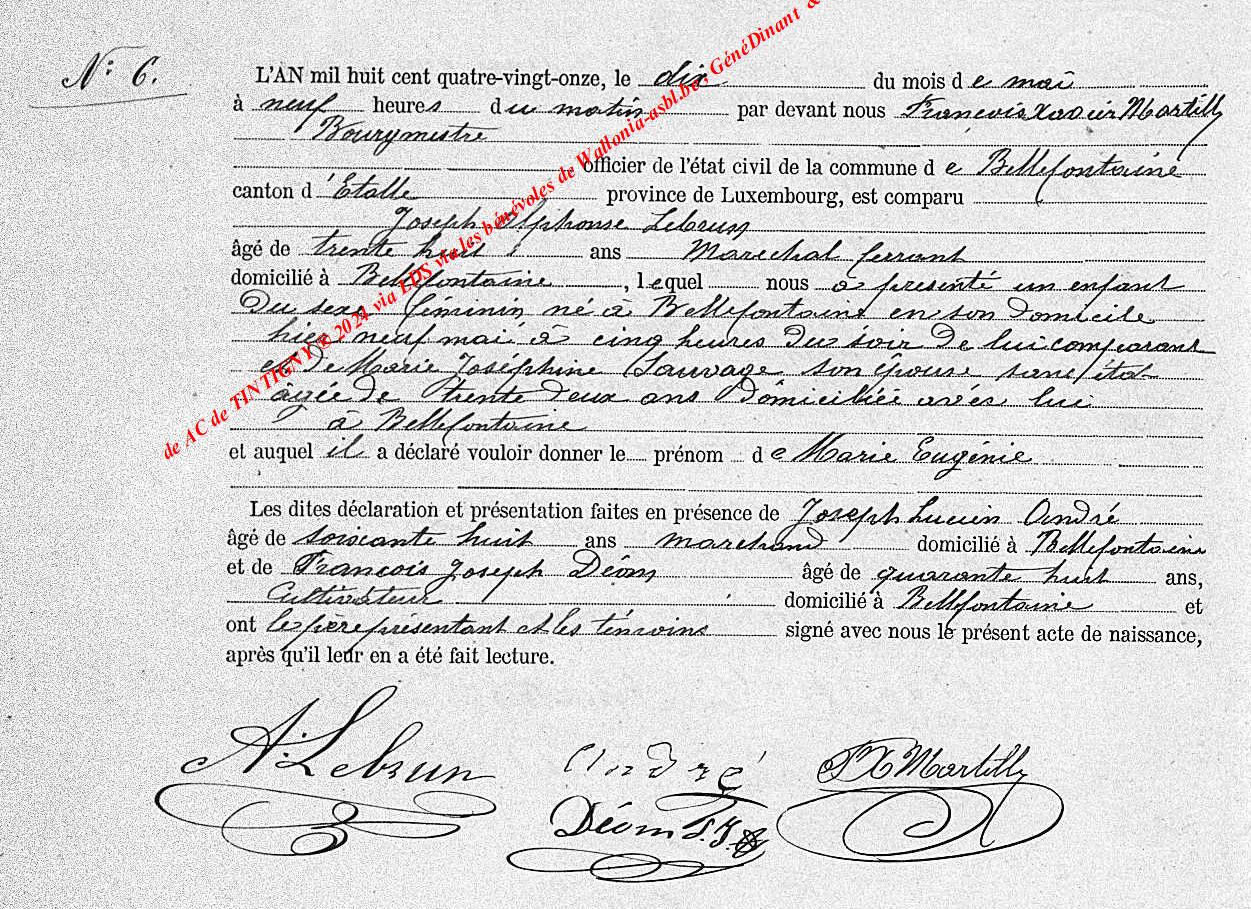 N° 6.
L'AN mil huit cent quatre-vingt-onze, le dix du mois de mai
à neuf heures du matin par devant nous François Xavier Martilly
Bourgmestre
officier de l'état civil de la commune de Bellefontaine
canton d'Etalle province de Luxembourg, est comparu
Joseph Alphonse Lebrun
âgé de trente huit ans Marechal ferrant
domicilié à Bellefontaine, lequel nous a présenté un enfant
du sexe féminin né à Bellefontaine en son domicile
hier neuf mai à cinq heures du soir de lui comparant
et de Marie Joséphine Sauvage son épouse sans état
âgée de trente deux ans domiciliée avec lui
à Bellefontaine
et auquel il a déclaré vouloir donner le prénom de Marie Eugénie
Les dites déclaration et présentation faites en présence de Joseph Lucien André
âgé de soixante huit ans marchand domicilié à Bellefontaine
et de François Joseph Déom âgé de quarante huit ans,
Cultivateur domicilié à Bellefontaine et
ont le père présentant et les témoins signé avec nous le présent acte de naissance,
après qu'il leur en a été fait lecture.
A. Lebrun André FX Martilly
Déom f. j.
de AC de TINTIGNY © 2024 via LDS via les bénévoles de Wallonia-asbl.be, GénéDinant &